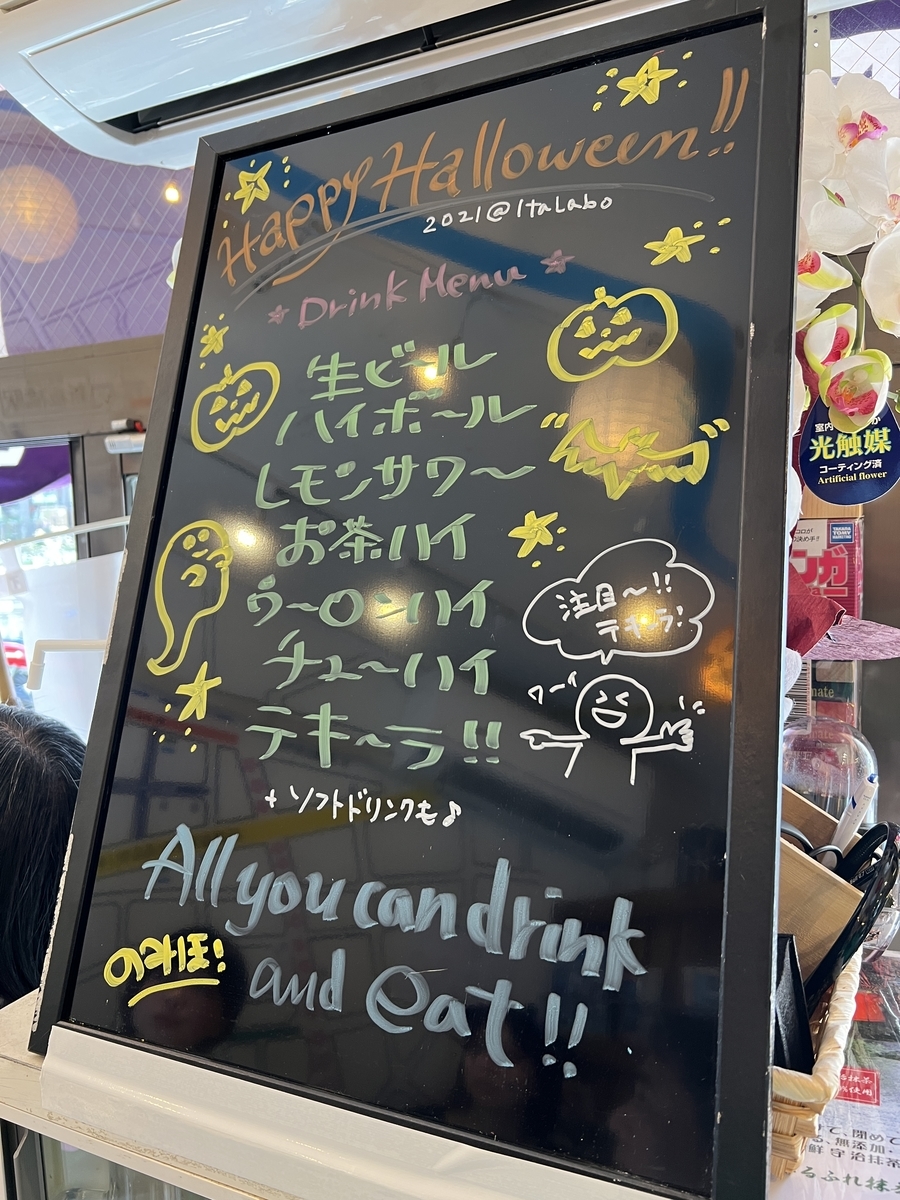 Happy Halloween!!
2021@ItaLabo
Drink Menu
生ビール
ハイボ〜ル
レモンサワ〜
お茶ハイ
ウ〜ロンハイ
チューハイ
テキ〜ラ!!
注目〜!!
テキーラ!
ワー
+ソフトドリンクも♪
All you can drink
のみほ!
and eat!!
室内
光触媒
コーティング済
Artificial flower
TAKARA
TOMY
ンガ